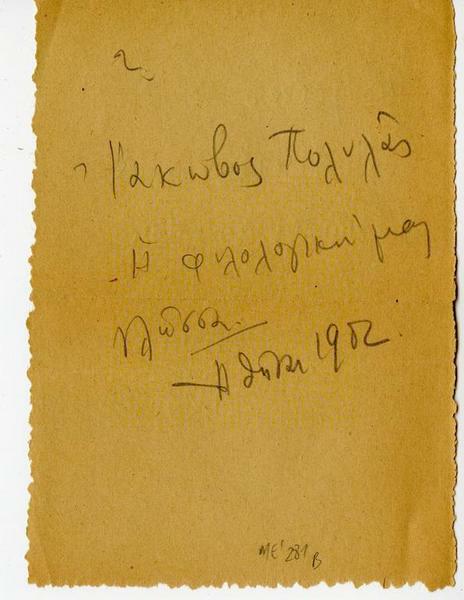 Ἰάκωβος Πολυλᾶς
Ἡ φιλολογική μας
γλῶσσα.
Ἀθῆναι 1902.
ΜΕ' 281
β